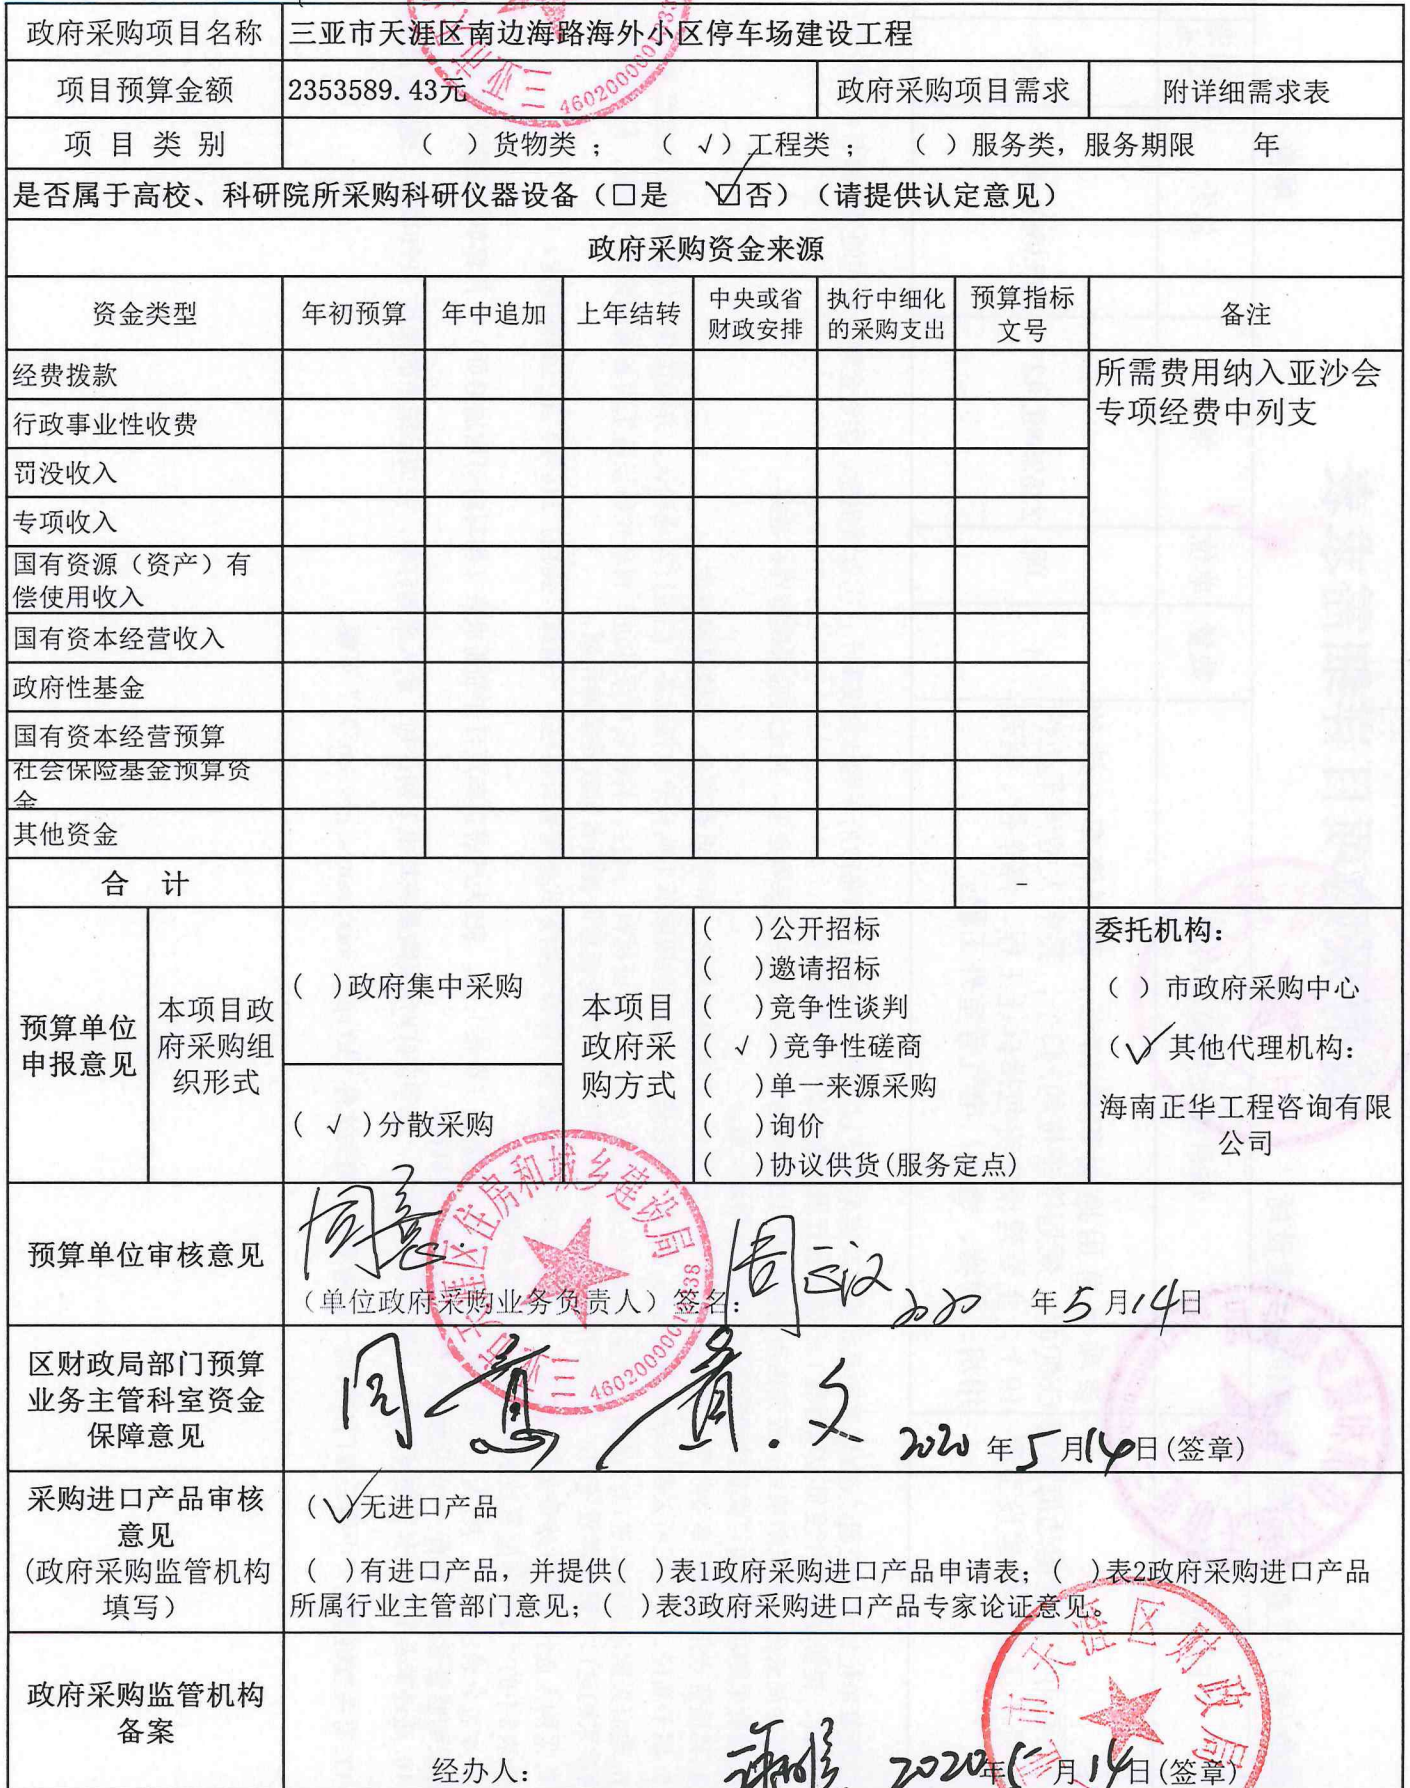 政府采购项目名称 三亚市天涯区南边海路海外小区停车场建设工程
项目预算金额 2353589.43元 政府采购项目需求 附详细需求表
项 目 类 别 （ ）货物类； （√）工程类； （ ）服务类，服务期限 年
是否属于高校、科研院所采购科研仪器设备（□是 ☑否）（请提供认定意见）
政府采购资金来源
资金类型 年初预算 年中追加 上年结转 中央或省 执行中细化 预算指标 备注
财政安排 的采购支出 文号
经费拨款 所需费用纳入亚沙会
专项经费中列支
行政事业性收费
罚没收入
专项收入
国有资源（资产）有
偿使用收入
国有资本经营收入
政府性基金
国有资本经营预算
社会保险基金预算资
金
其他资金
合 计 -
预算单位
申报意见
本项目政
府采购组
织形式
( )政府集中采购
( √ )分散采购
本项目
政府采
购方式
( )公开招标
( )邀请招标
( )竞争性谈判
( √ )竞争性磋商
( )单一来源采购
( )询价
( )协议供货(服务定点)
委托机构：
（ ）市政府采购中心
（√）其他代理机构：
海南正华工程咨询有限
公司
预算单位审核意见
同意.
（单位政府采购业务负责人）签名： 2020 年5月14日
三亚市天涯区住房和城乡建设局
区财政局部门预算
业务主管科室资金
保障意见
同意
2020年5月14日(签章)
采购进口产品审核
意见
(政府采购监管机构
填写）
（√）无进口产品
（ )有进口产品，并提供( )表1政府采购进口产品申请表；( )表2政府采购进口产品
所属行业主管部门意见；( )表3政府采购进口产品专家论证意见。
政府采购监管机构
备案
经办人： 2020年5月14日(签章)
市天涯区财政局